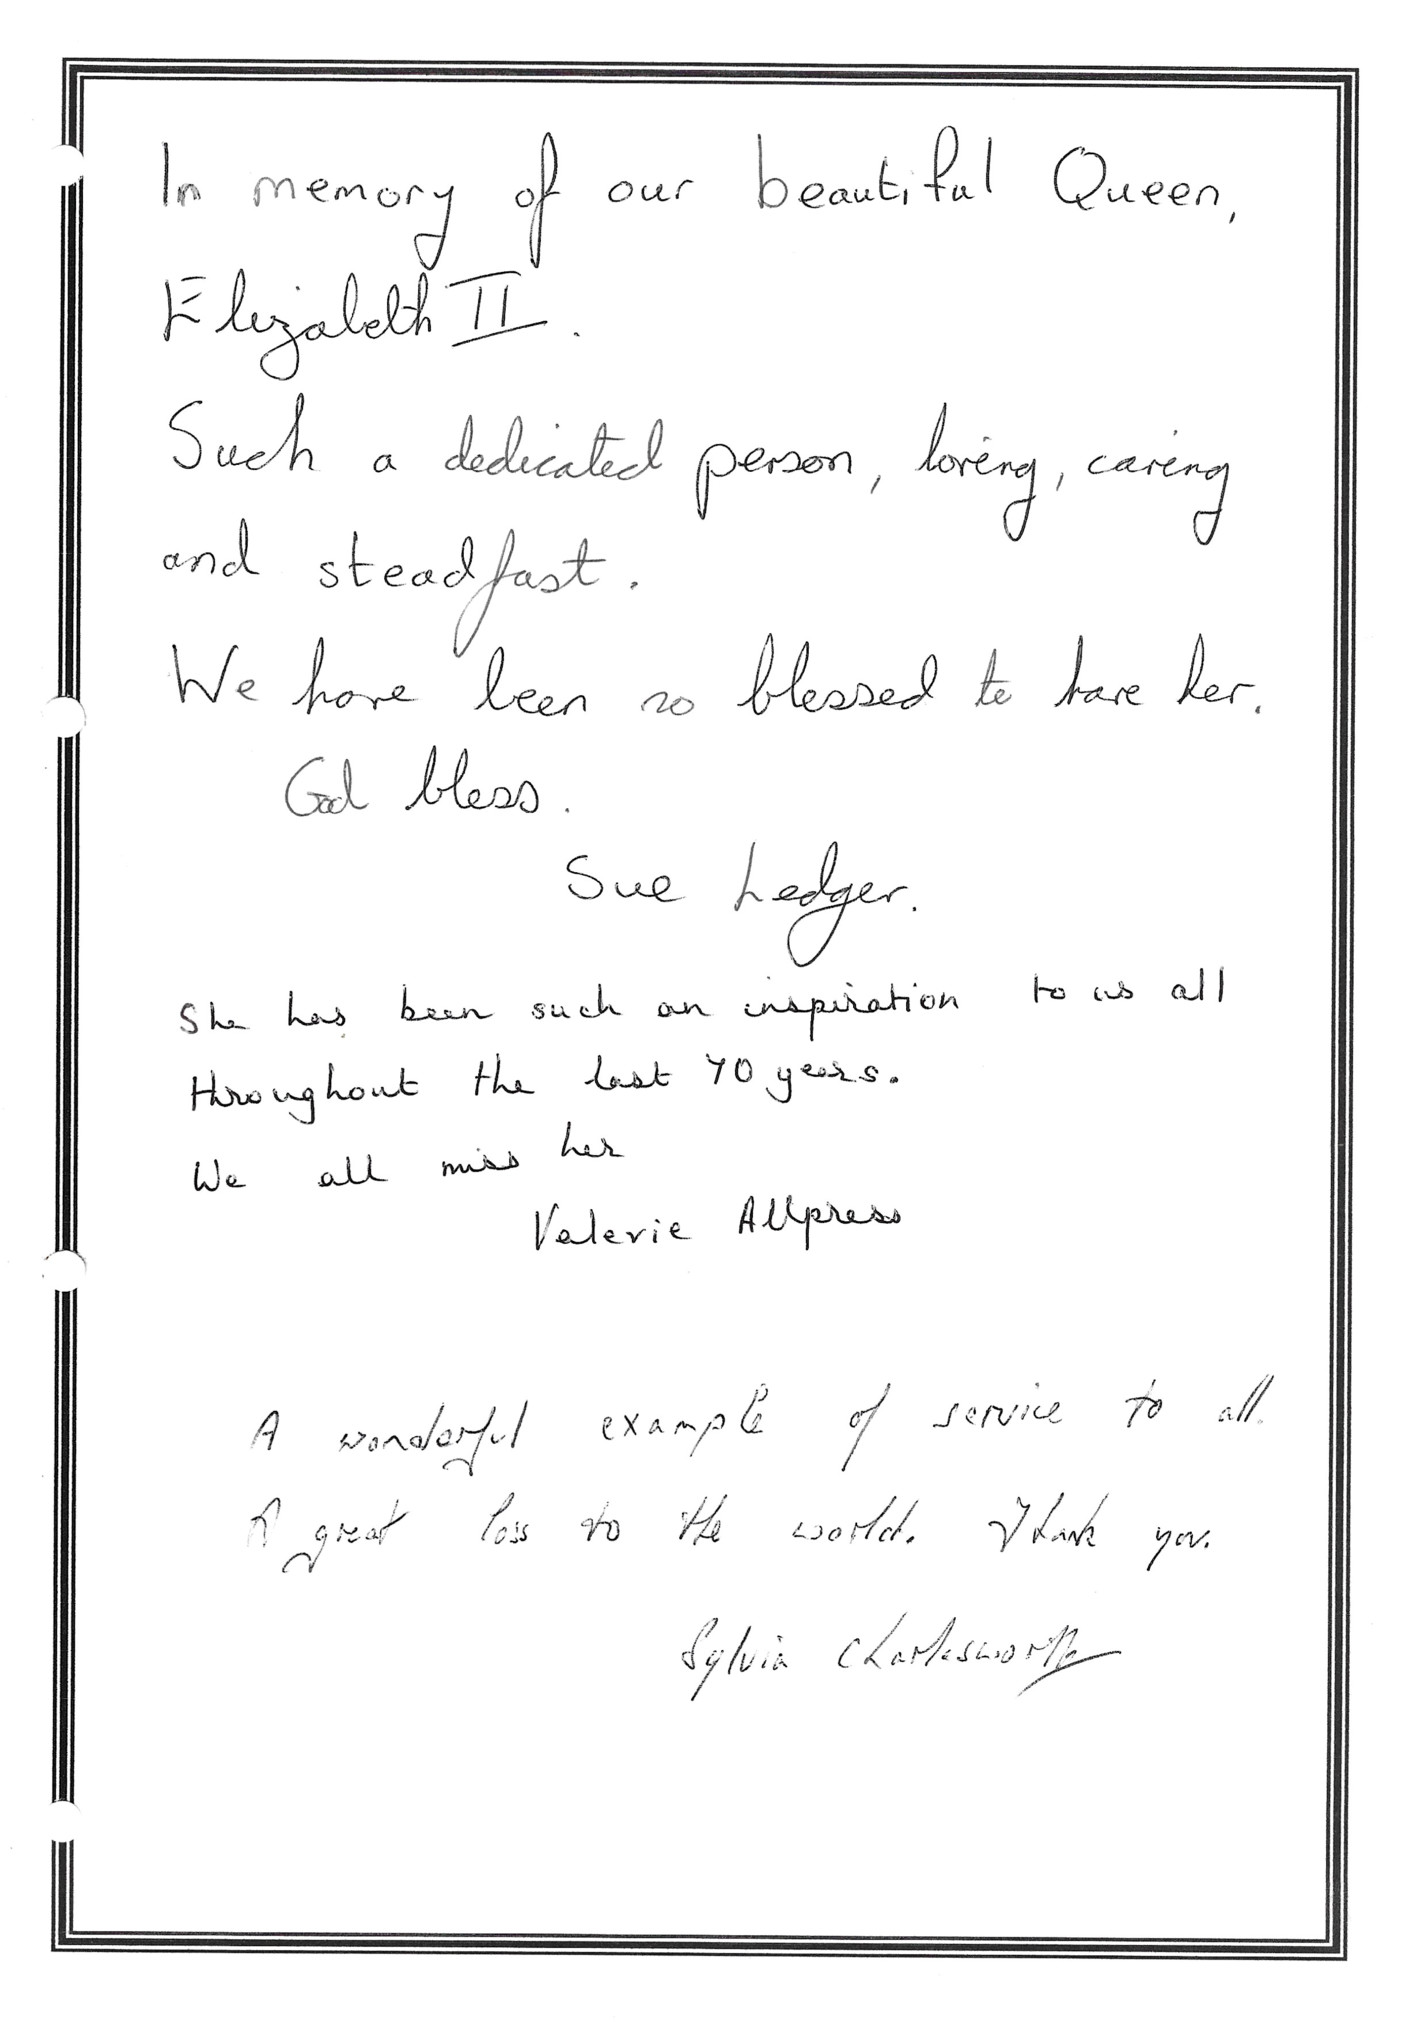 In memory of our beautiful Queen,
Elizabeth II.
Such a dedicated person, loving, caring
and steadfast.
We have been so blessed to have her.
God bless.
Sue Ledger.
She has been such an inspiration to us all
throughout the last 70 years.
We all miss her
Valerie Allpress
A wonderful example of service to all.
A great loss to the world. Thank you.
Sylvia Charlesworth